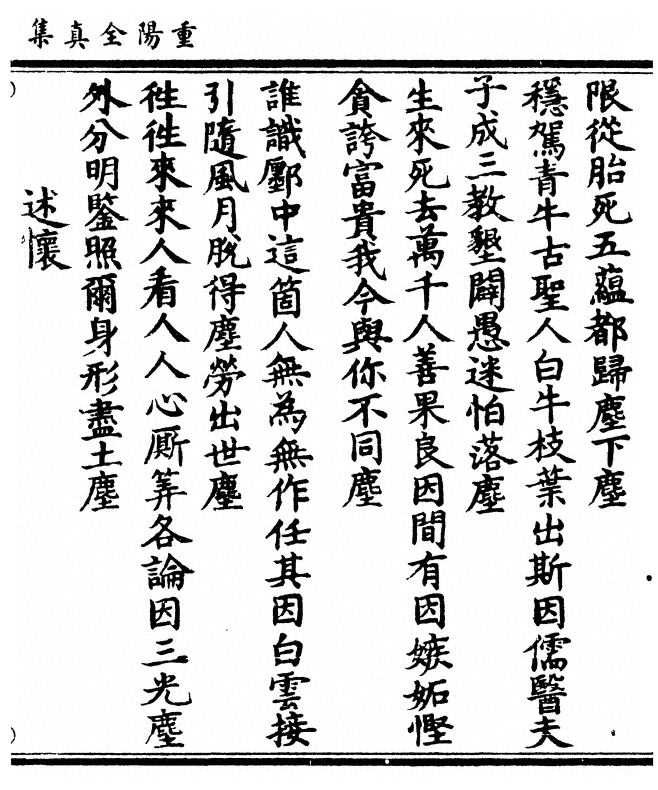 重陽全真集
限從胎死五蘊都歸塵下塵
穩駕青牛古聖人白牛枝葉出斯因儒醫夫
子成三教墾闢愚迷怕落塵
生來死去萬千人善果良因間有因嫉妬慳
貪誇富貴我今與你不同塵
誰識酆中這箇人無為無作任其因白雲接
引隨風月脫得塵勞出世塵
徃徃來來人看人人心厮筭各論因三光塵
外分明鑒照爾身形盡土塵
述懷